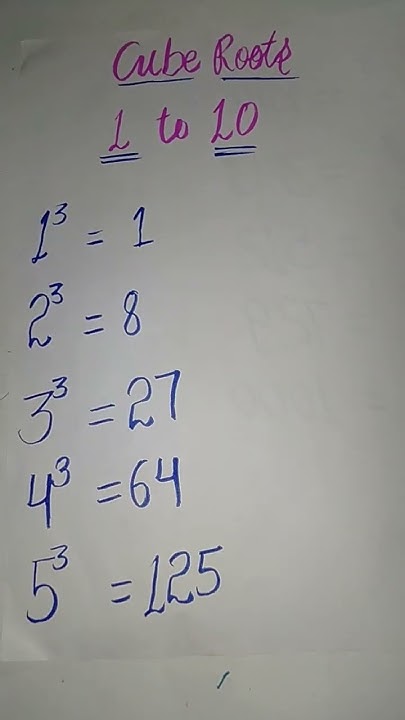 Cube Roots
1 to 10
1³ = 1
2³ = 8
3³ = 27
4³ = 64
5³ = 125